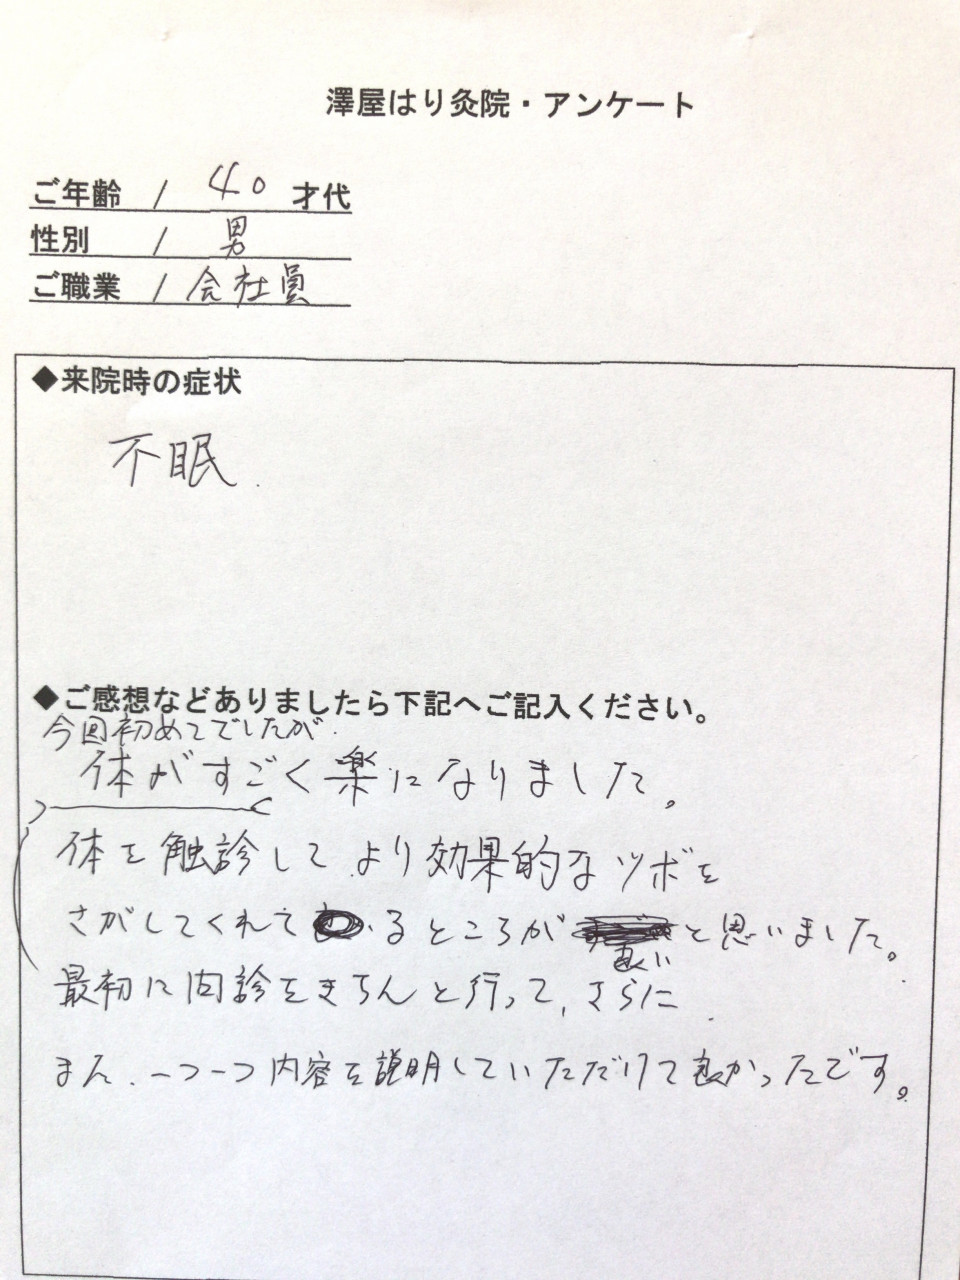 澤屋はり灸院・アンケート
ご年齢 / 40 才代
性別 / 男
ご職業 / 会社員
◆来院時の症状
不眠.
◆ご感想などありましたら下記へご記入ください。
今回初めてでしたが
体がすごく楽になりました。
体を触診して より効果的なツボを
さがしてくれているところが と思いました。
良い
最初に問診をきちんと行って、さらに
また、一つ一つ内容を説明していただけて良かったです。